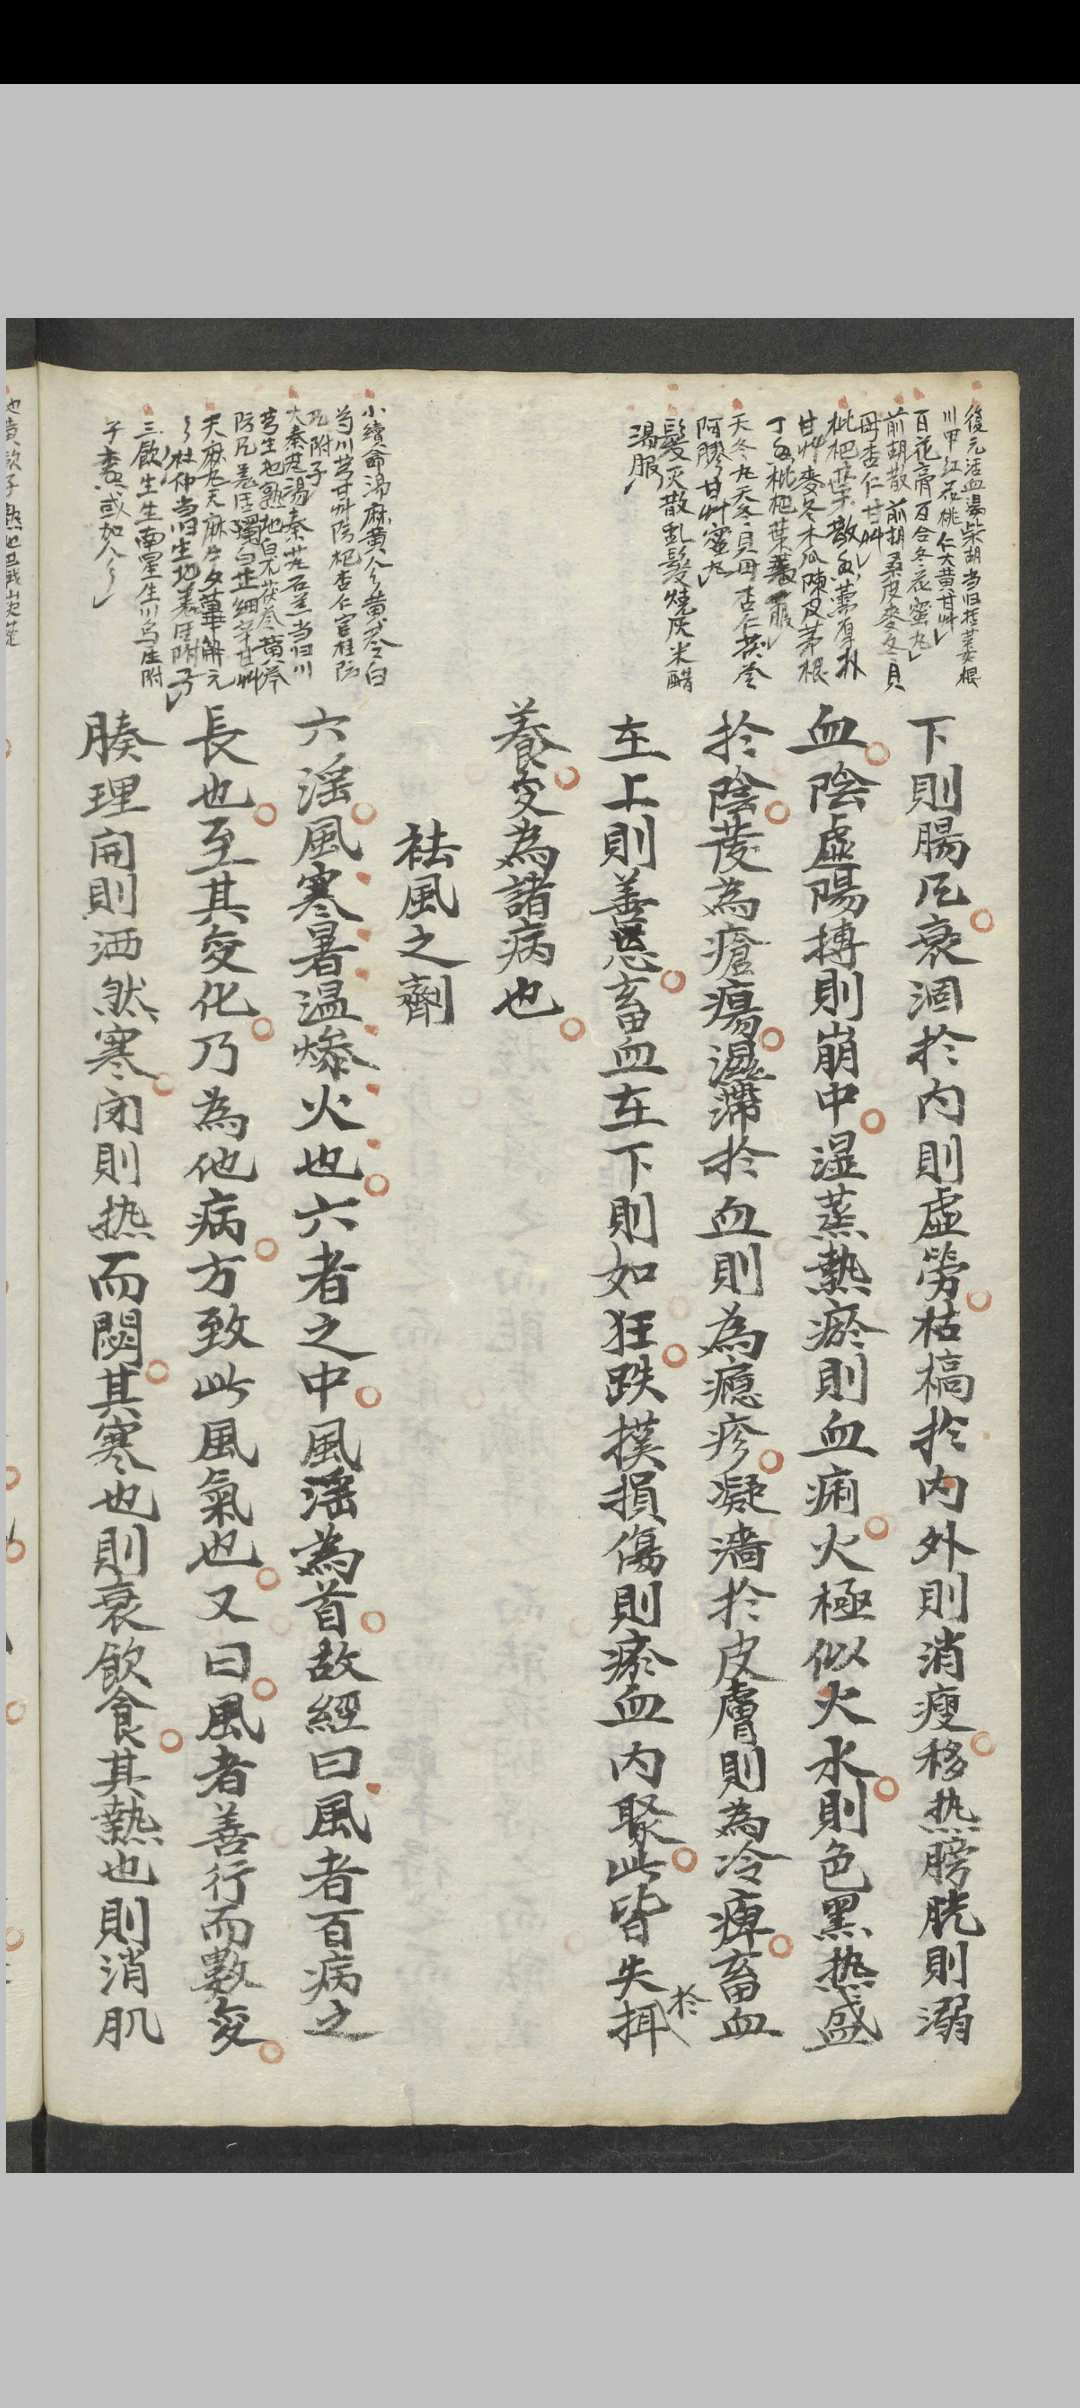 復元活血湯柴胡当归括蒌根
川甲红花桃仁大黄甘艸
百花膏百合冬花蜜丸
前胡散前胡桑皮麥冬貝
母杏仁甘艸
枇杷葉散 厚朴
甘艸麥冬木瓜陳皮茅根
丁 枇杷葉
天冬丸天冬貝母杏仁茯苓
阿膠甘艸蜜丸
髮灰散乱髮燒灰米醋
湯服
下則腸 衰涸於內則虛勞枯槁於內外則消瘦移热膀胱則溺
血陰虛陽搏則崩中湿蒸熱瘀則血痢火極似火水則色黑热盛
於陰發為瘡瘍濕滯於血則為瘾疹凝濇於皮膚則為冷痺畜血
在上則善忘畜血在下則如狂跌撲損傷則瘀血内聚此皆失於
養变為諸病也
祛風之劑
小續命湯麻黄人参黄芩白
芍川芎甘艸防杞杏仁官桂防
附子
大秦艽湯秦艽石羔当归川
芎生地熟地白朮茯苓黄芩
防 羌活獨白芷細辛甘艸
天麻丸天麻牛夕萆薢元
参杜仲当归生地羌活附子
三飲生生南星生川烏生附
子 或加人参
六淫風寒暑温燥火也六者之中風淫為首故經曰風者百病之
長也至其变化乃為他病方致此風氣也又曰風者善行而數变
腠理開則洒然寒闭則热而悶其寒也則衰飲食其熱也則消肌